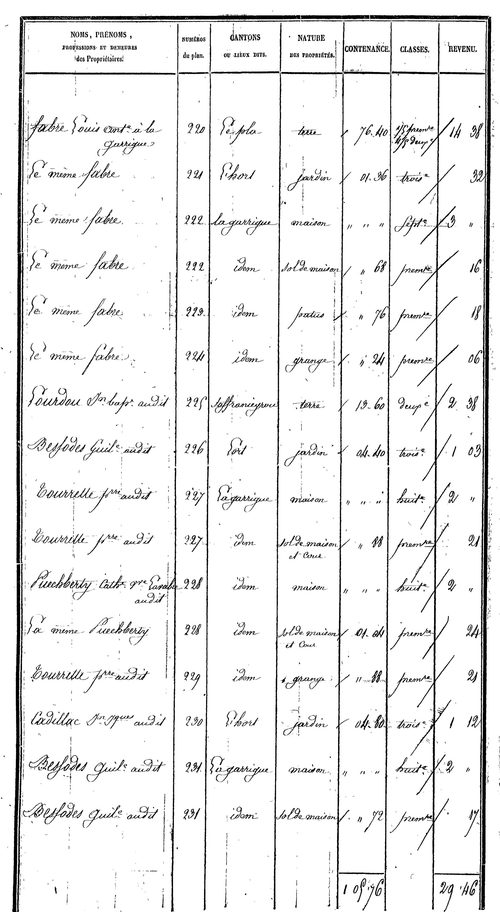 NOMS, PRÉNOMS, PROFESSIONS ET DEMEURES des Propriétaires. | NUMÉROS du plan. | CANTONS OU LIEUX DITS. | NATURE DES PROPRIÉTÉS. | CONTENANCE. | CLASSES. | REVENU.
fabre Louis ant.e à la garrigue 220 Le pla terre 76.40 14 38
Le même fabre 221 L'hort jardin 01.36 trois.e 32
Le même fabre 222 la garrigue maison " " " sept.e 3 "
Le même fabre 222 idem sol de maison " 68 prem.re 16
Le même fabre 223 idem patus " 76 prem.re 18
Le même fabre 224 idem grange " 24 prem.re 06
Lourdou J.n bap.te audit 225 terre 13.60 deux.e 2 38
Bessodes Guil.e audit 226 L'ort jardin 04.40 trois.e 1 03
Tourrelle p.rre audit 227 La garrigue maison " " " huit.e 2 "
Tourrelle p.rre audit 227 idem sol de maison et cour " 88 prem.re 21
Puechberty Cath.e audit 228 idem maison " " " huit.e 2 "
La même Puechberty 228 idem sol de maison et cour 01.04 prem.re 24
Tourrelle p.rre audit 229 idem grange " 88 prem.re 21
Cadillac J.n J.ques audit 230 L'hort jardin 04.80 trois.e 1 12
Bessodes Guil.e audit 231 La garrigue maison " " " huit.e 2 "
Bessodes Guil.e audit 231 idem sol de maison " 72 prem.re 17
1 05.76 29.46